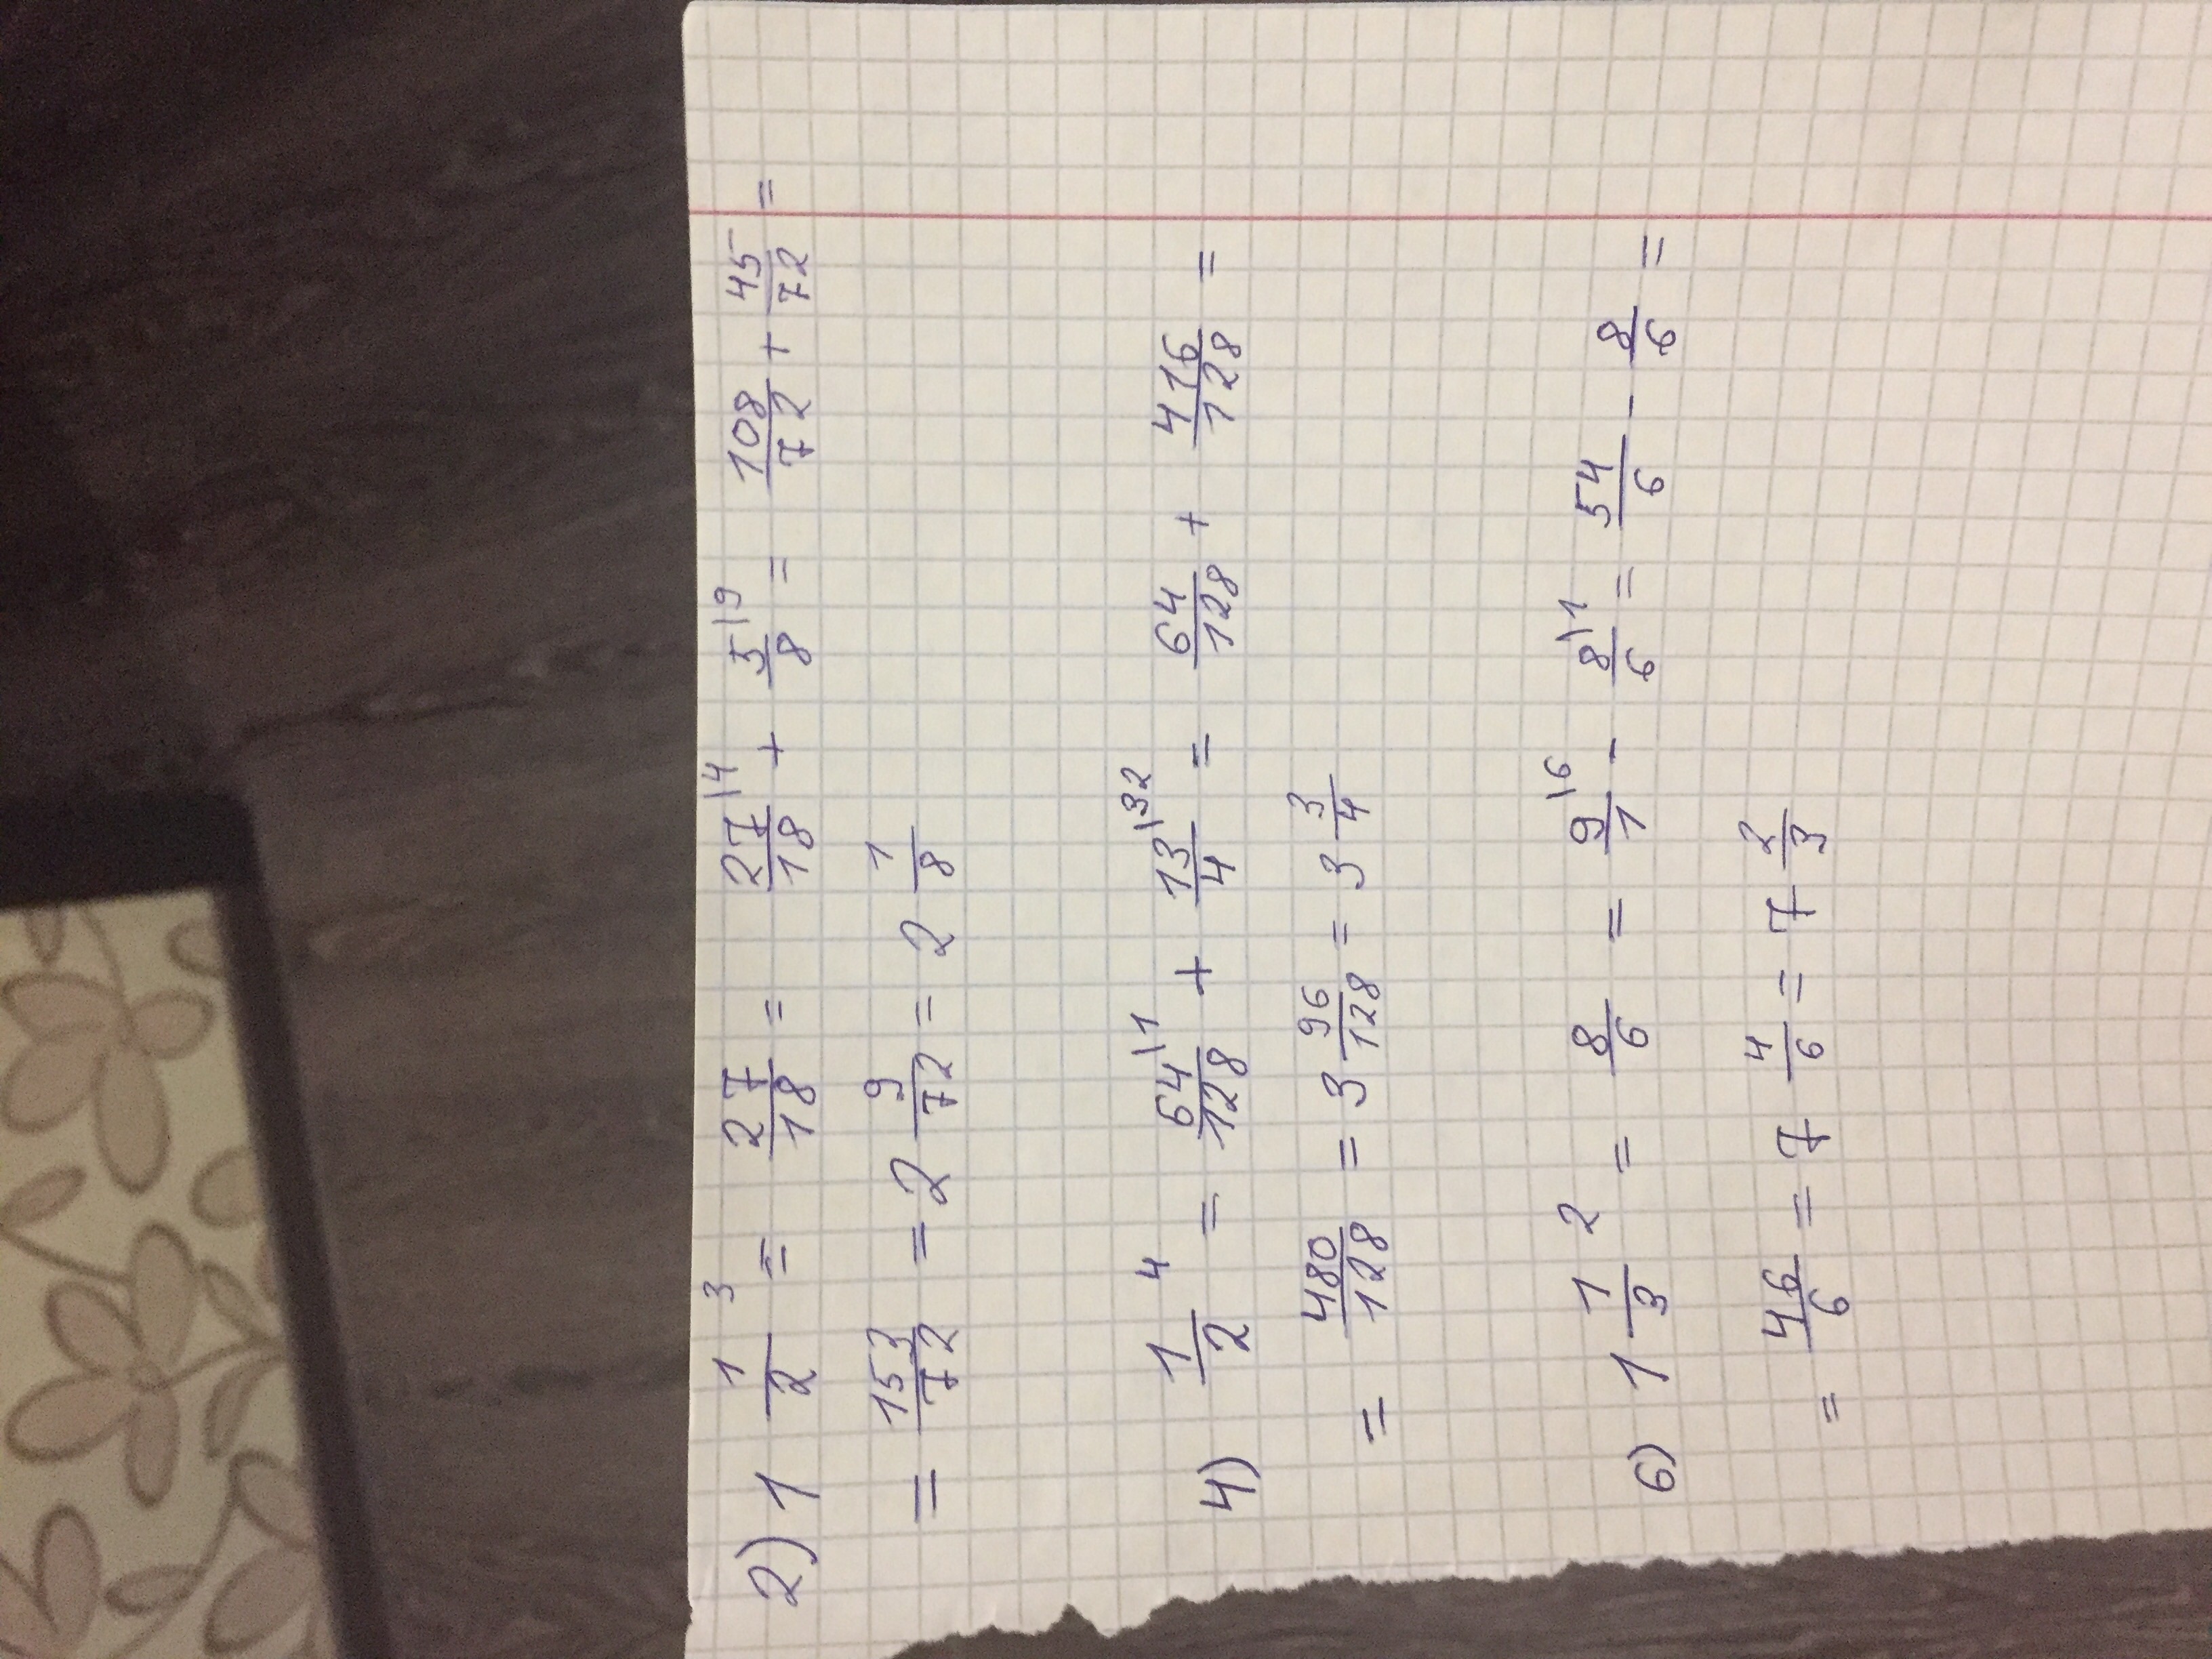 2) 1 1/2 ³ = 27/18 = 27/18 \4 + 5/8 \9 = 108/72 + 45/72 =
= 153/72 = 2 9/72 = 2 1/8
4) 1/2 ⁴ = 64/128 \1 + 13/4 \32 = 64/128 + 416/128 =
= 480/128 = 3 96/128 = 3 3/4
6) 1 1/3 ² = 8/6 = 9/1 \6 - 8/6 \1 = 54/6 - 8/6 =
= 46/6 = 7 4/6 = 7 2/3